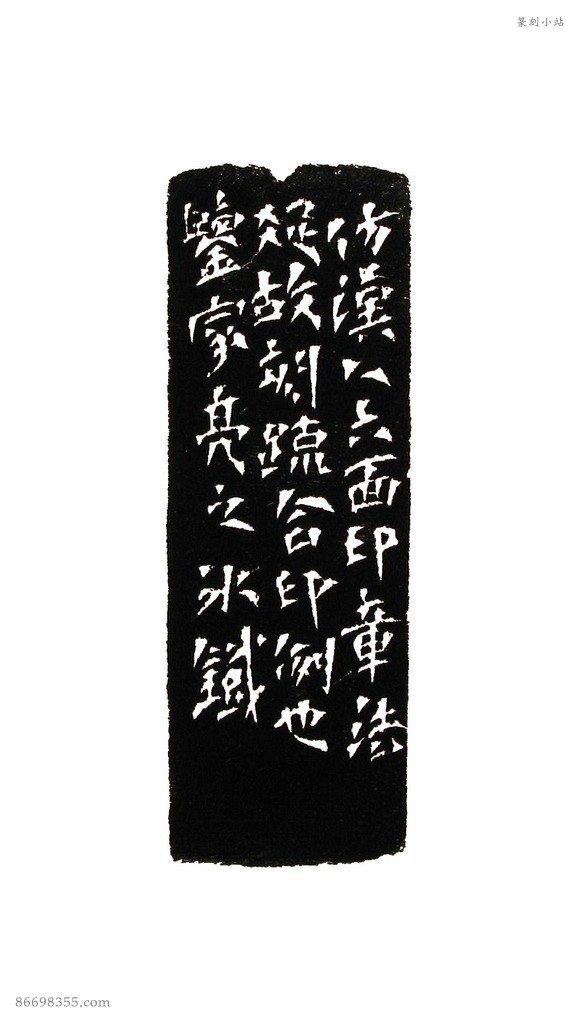 篆刻小站
仿漢人六面印章法
故刻疏合印例也
鑒家亮之冰鐵
86698355.com